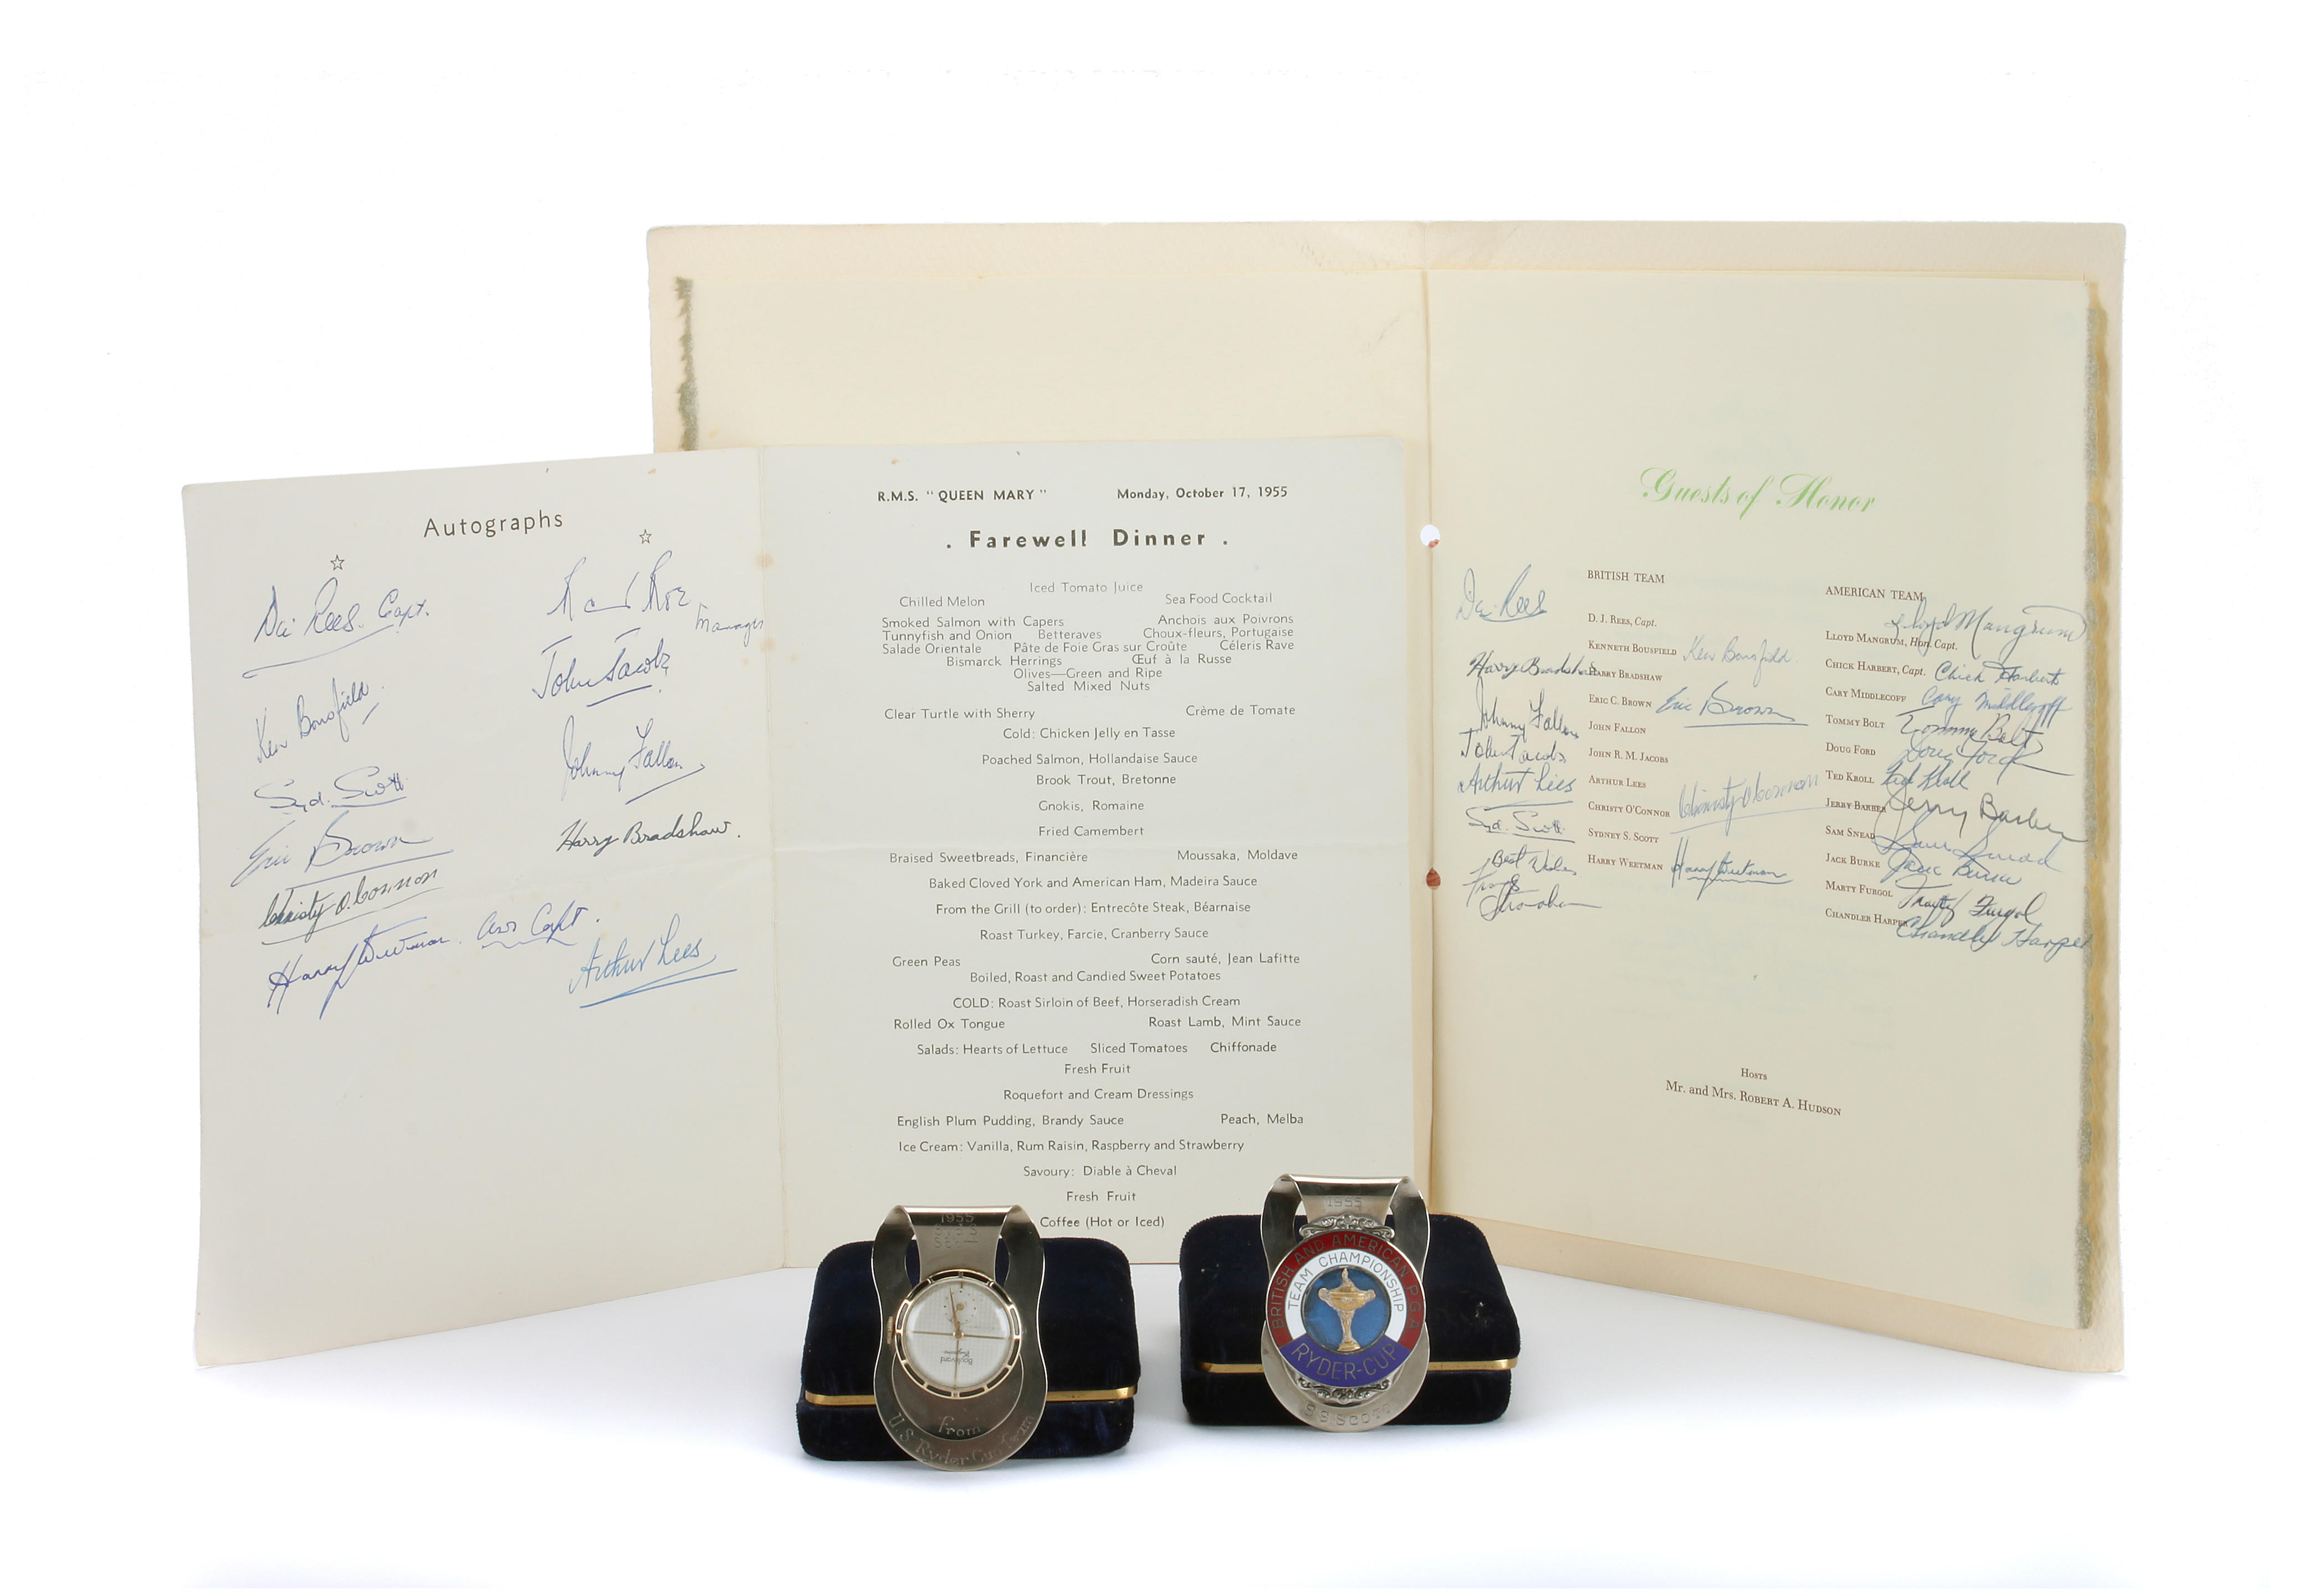 Autographs
Dai Rees. Capt.
Ken Bousfield.
Syd. Scott
Eric Brown
Christy O'Connor
Harry Weetman. Capt.
Roe
Manager
John Jacobs
Johnny Fallon
Harry Bradshaw.
Arthur Lees
R.M.S. "QUEEN MARY" Monday, October 17, 1955
. Farewell Dinner .
Iced Tomato Juice
Chilled Melon Sea Food Cocktail
Smoked Salmon with Capers Anchois aux Poivrons
Tunnyfish and Onion Betteraves Choux-fleurs, Portugaise
Salade Orientale Pâte de Foie Gras sur Croûte Céleris Rave
Bismarck Herrings Œuf à la Russe
Olives—Green and Ripe
Salted Mixed Nuts
Clear Turtle with Sherry Crème de Tomate
Cold: Chicken Jelly en Tasse
Poached Salmon, Hollandaise Sauce
Brook Trout, Bretonne
Gnokis, Romaine
Fried Camembert
Braised Sweetbreads, Financière Moussaka, Moldave
Baked Cloved York and American Ham, Madeira Sauce
From the Grill (to order): Entrecôte Steak, Béarnaise
Roast Turkey, Farcie, Cranberry Sauce
Green Peas Corn sauté, Jean Lafitte
Boiled, Roast and Candied Sweet Potatoes
COLD: Roast Sirloin of Beef, Horseradish Cream
Rolled Ox Tongue Roast Lamb, Mint Sauce
Salads: Hearts of Lettuce Sliced Tomatoes Chiffonade
Fresh Fruit
Roquefort and Cream Dressings
English Plum Pudding, Brandy Sauce Peach, Melba
Ice Cream: Vanilla, Rum Raisin, Raspberry and Strawberry
Savoury: Diable à Cheval
Fresh Fruit
Coffee (Hot or Iced)
Guests of Honor
BRITISH TEAM
Dai Rees
D. J. REES, Capt.
KENNETH BOUSFIELD Ken Bousfield
Harry Bradshaw HARRY BRADSHAW
ERIC C. BROWN Eric Brown
Johnny Fallon JOHN FALLON
John Jacobs JOHN R. M. JACOBS
Arthur Lees ARTHUR LEES
CHRISTY O'CONNOR Christy O'Connor
Syd. Scott SYDNEY S. SCOTT
HARRY WEETMAN Harry Weetman
Best Wishes
AMERICAN TEAM
Lloyd Mangrum
LLOYD MANGRUM, Hon. Capt.
CHICK HARBERT, Capt. Chick Harbert
CARY MIDDLECOFF Cary Middlecoff
TOMMY BOLT Tommy Bolt
DOUG FORD Doug Ford
TED KROLL Ted Kroll
JERRY BARBER Jerry Barber
SAM SNEAD Sam Snead
JACK BURKE Jack Burke
MARTY FURGOL Marty Furgol
CHANDLER HARPER Chandler Harper
HOSTS
Mr. and Mrs. ROBERT A. HUDSON
1955
Boulevard
from
U.S. Ryder Cup Team
1955
BRITISH AND AMERICAN P.G.A.
TEAM CHAMPIONSHIP
RYDER-CUP
S S SCOTT